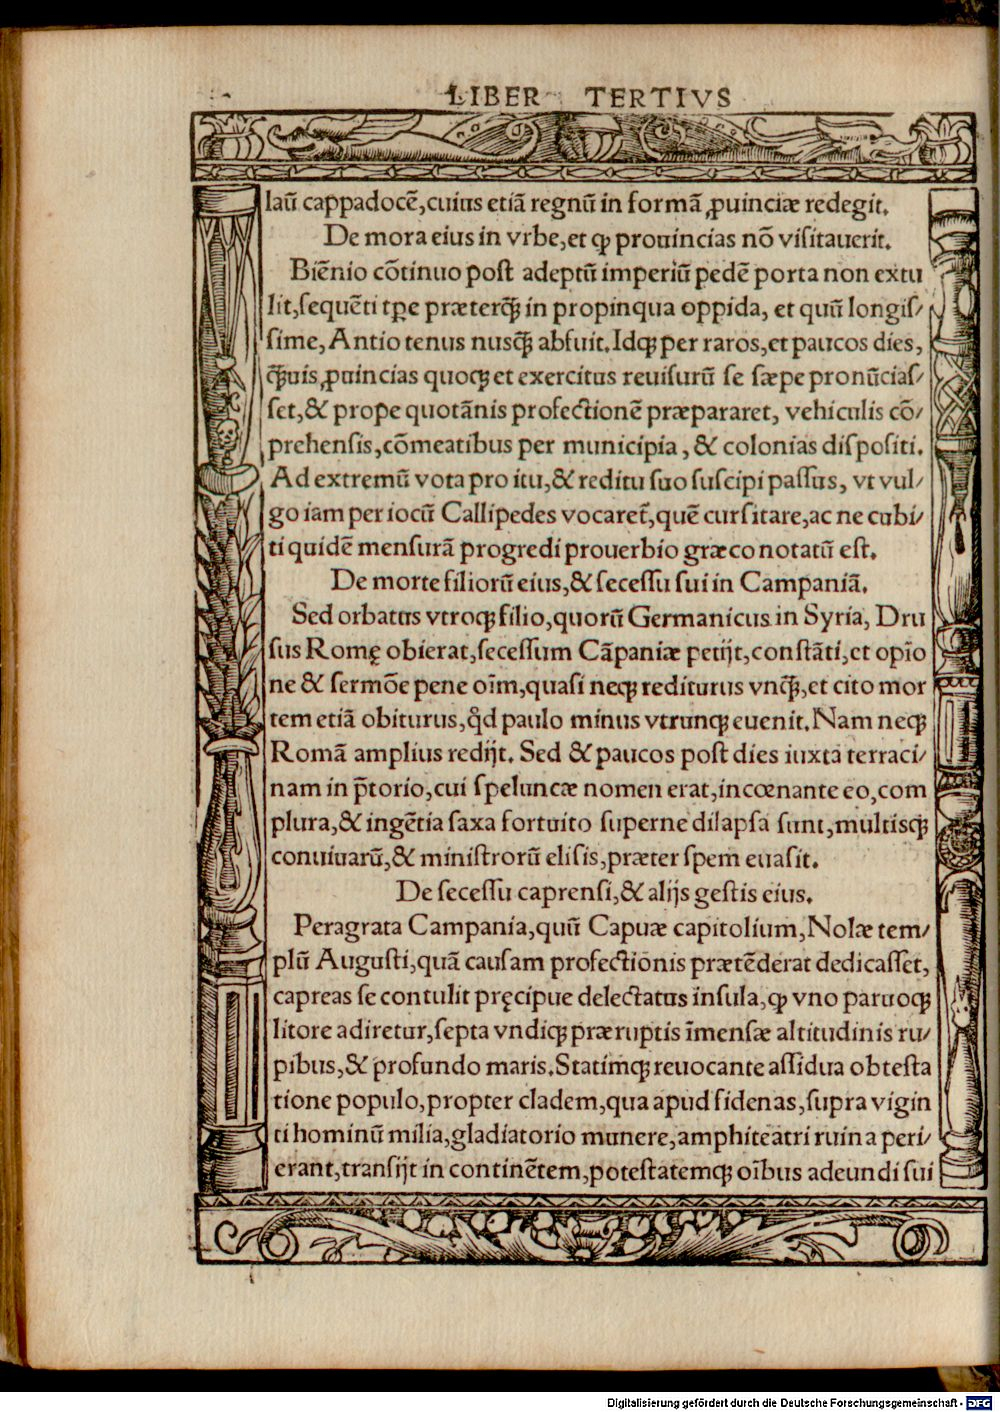 LIBER TERTIVS
laū cappadocē, cuius etiā regnū in formā ꝓuinciæ redegit.
De mora eius in vrbe, et ꝙ prouincias nō visitauerit.
Biēnio cōtinuo post adeptū imperiū pedē porta non extu
lit, sequēti tꝑe præterꝙ̄ in propinqua oppida, et quū longis/
sime, Antio tenus nusꝙ̄ abfuit. Idqꝫ per raros, et paucos dies,
ꝙ̄uis ꝓuincias quoqꝫ et exercitus reuisurū se sæpe pronūcias/
set, & prope quotānis profectionē præpararet, vehiculis cō/
prehensis, cōmeatibus per municipia, & colonias dispositi.
Ad extremū vota pro itu, & reditu suo suscipi passus, vt vul/
go iam per iocū Callipedes vocaret̄, quē cursitare, ac ne cubi/
ti quidē mensurā progredi prouerbio græco notatū est.
De morte filiorū eius, & secessu sui in Campaniā.
Sed orbatus vtroqꝫ filio, quorū Germanicus in Syria, Dru
sus Romę obierat, secessum Cāpaniæ petijt, constāti, et opīo
ne & sermōe pene oīm, quasi neqꝫ rediturus vnꝙ̄, et cito mor
tem etiā obiturus, qd̄ paulo minus vtrunqꝫ euenit. Nam neqꝫ
Romā amplius redijt. Sed & paucos post dies iuxta terraci/
nam in p̄torio, cui speluncæ nomen erat, incœnante eo, com
plura, & ingētia saxa fortuito superne dilapsa sunt, multisqꝫ
conuiuarū, & ministrorū elisis, præter spem euasit.
De secessu caprensi, & alijs gestis eius.
Peragrata Campania, quū Capuæ capitolium, Nolæ tem/
plū Augusti, quā causam profectionis prætēderat dedicasset,
capreas se contulit pręcipue delectatus insula, ꝙ vno paruoqꝫ
litore adiretur, septa vndiqꝫ præruptis īmensæ altitudinis ru/
pibus, & profundo maris. Statimqꝫ reuocante assidua obtesta
tione populo, propter cladem, qua apud fidenas, supra vigin
ti hominū milia, gladiatorio munere, amphiteatri ruina peri/
erant, transijt in continētem, potestatemqꝫ oībus adeundi sui
Digitalisierung gefördert durch die Deutsche Forschungsgemeinschaft - DFG